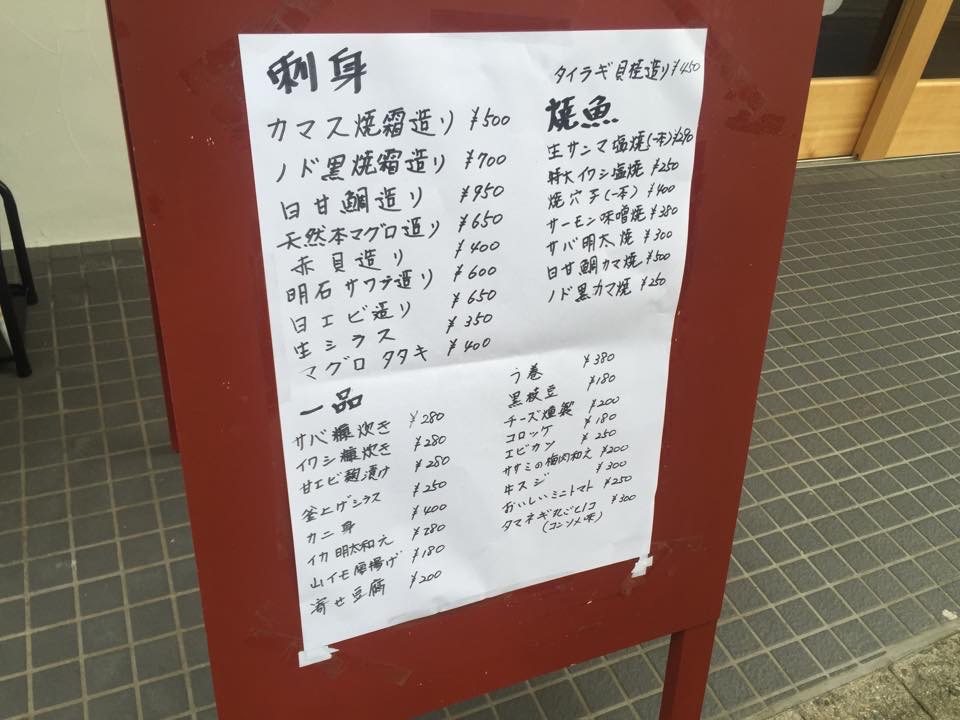 刺身
カマス焼霜造り ¥500
ノド黒焼霜造り ¥700
白甘鯛造り ¥950
天然本マグロ造り ¥650
赤貝造り ¥400
明石サワラ造り ¥600
白エビ造り ¥650
生シラス ¥350
マグロタタキ ¥400
タイラギ貝柱造り ¥450
焼魚
生サンマ塩焼(一本) ¥280
特大イワシ塩焼 ¥250
焼穴子(一本) ¥400
サーモン味噌焼 ¥380
サバ明太焼 ¥300
白甘鯛カマ焼 ¥500
ノド黒カマ焼 ¥250
一品
サバ糠炊き ¥280
イワシ糠炊き ¥280
甘エビ麹漬け ¥280
釜上げシラス ¥250
カニ身 ¥400
イカ明太和え ¥280
山イモ磯揚げ ¥180
寄せ豆腐 ¥200
う巻 ¥380
黒枝豆 ¥180
チーズ燻製 ¥200
コロッケ ¥180
エビカツ ¥250
ササミの梅肉和え ¥200
牛スジ ¥300
おいしいミニトマト ¥250
タマネギ丸ごと1コ ¥300
(コンソメ味)